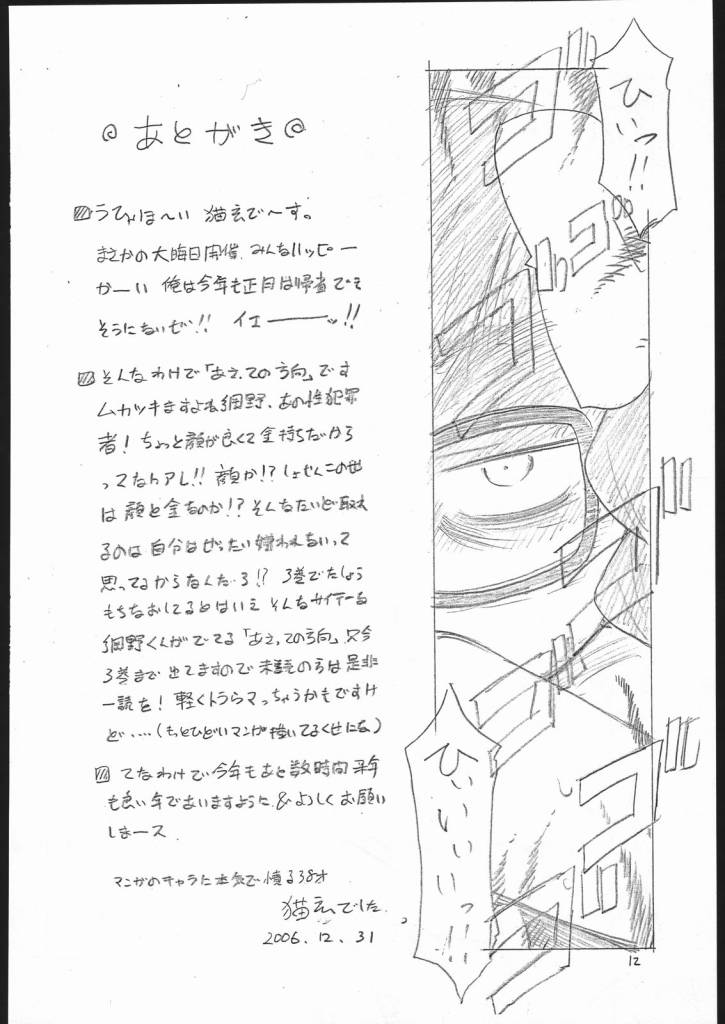 あとがき
うひょほ〜い 猫玄で〜す。
まさかの大晦日開催、みんなハッピー
かーい 俺は今年も正月は帰省でき
そうにないぜ!! イエーーーッ!!
そんなわけで「あさっての方向」です
ムカツキますよね網野、あの性犯罪
者! ちょっと顔が良くて金持ちだから
ってなんアレ!! 顔か!? しょせんこの世
は顔と金なのか!? そんなたいど取れ
るのは自分はぜったい嫌われないって
思ってるからなんだろ!? 3巻でたしょう
もちなおしてるとはいえそんなサイテーな
網野くんがでてる「あさっての方向」只今
3巻まで出てますので未読の方は是非
一読を! 軽くトラウマっちゃうかもですけ
ど‥‥(もっとひどいマンガ描いてるくせにな)
てなわけで今年もあと数時間来年
も良い年でありますように&よろしくお願い
しまース
マンガのキャラに本気で憤る38才
猫玄でした。
2006.12.31
ひいっ!!
ひいいいっ!!
12